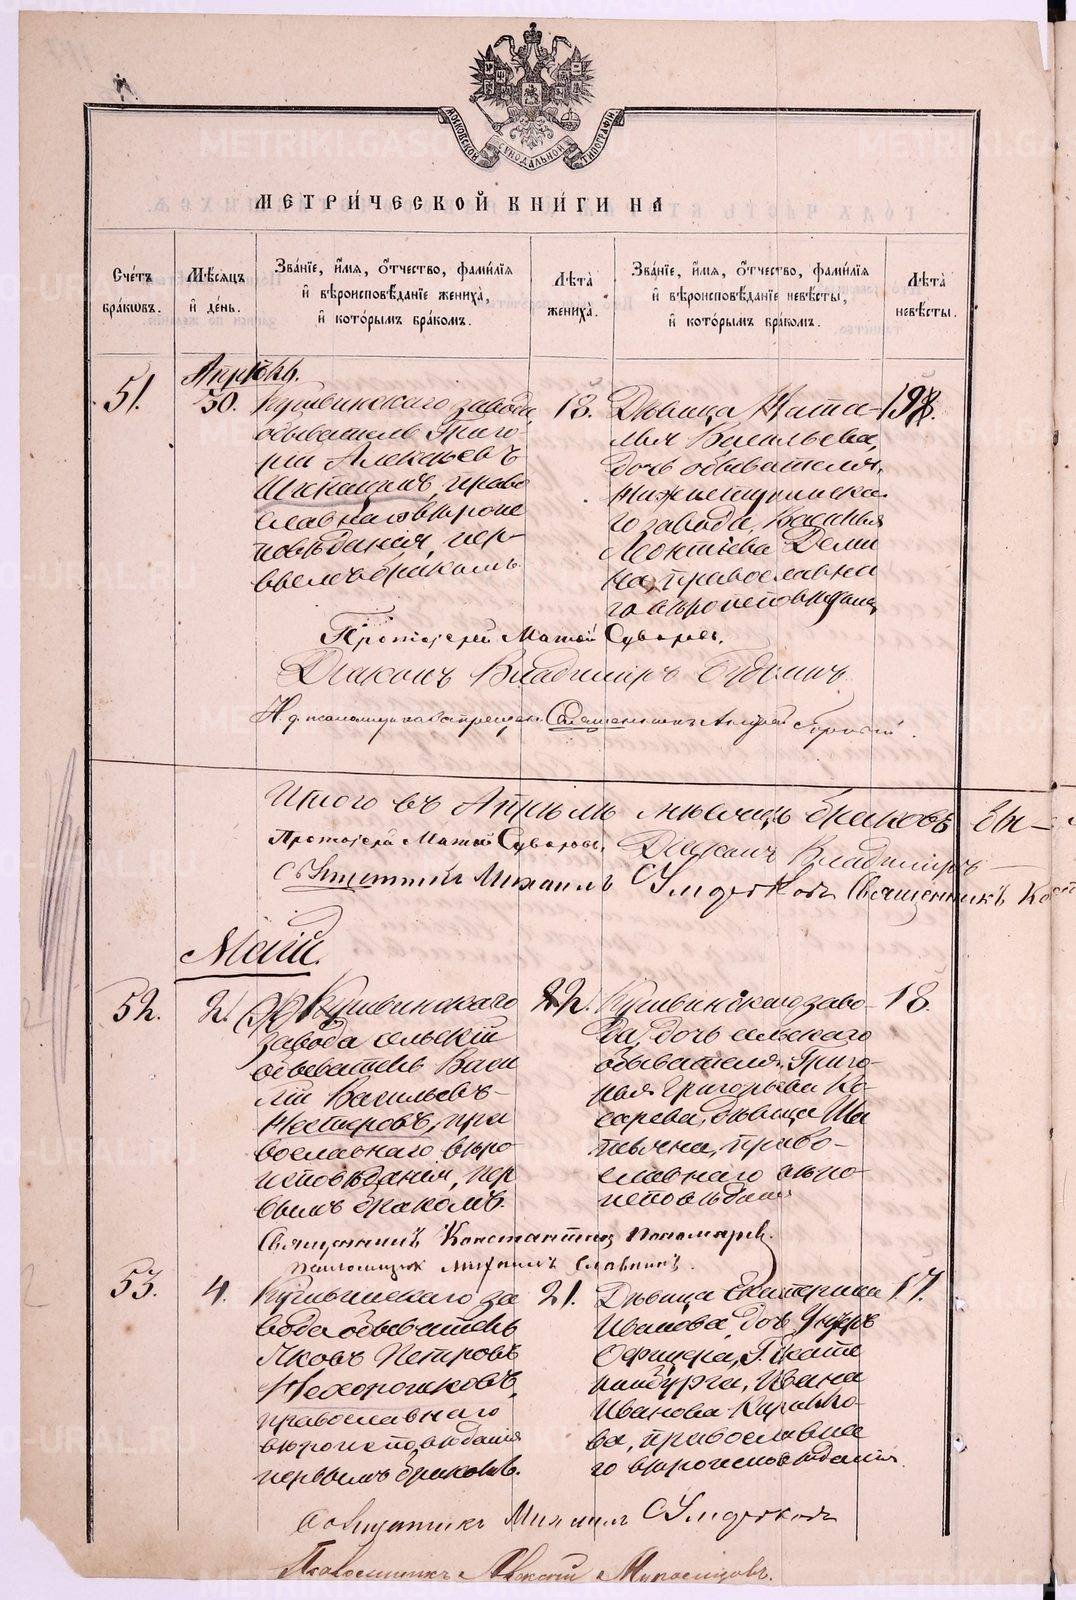 МОСКОВСКОЙ СУНОДАЛЬНОЙ ТИПОГРАФІИ
МЕТРИ́ЧЕСКОЙ КНИ́ГИ НА
Сче́тъ бра́ковъ.
Мѣ́сяцъ и҆ де́нь.
Зва́нїе, и҆́мя, ѻ҆́тчество, фами́лїя и҆ вѣроисповѣ́данїе жениха̀, и҆ кото́рымъ бра́комъ.
Лѣ́та жениха̀.
Зва́нїе, и҆́мя, ѻ҆́тчество, фами́лїя и҆ вѣроисповѣ́данїе невѣ́сты, и҆ кото́рымъ бра́комъ.
Лѣ́та невѣ́сты.
Апрѣль.
51.
30.
Кушвинскаго завода
обыватель Григо-
рій Алексѣевъ
право
славнаго вѣроис
повѣданія, пер-
вымъ бракомъ
18.
Дѣвица Ната-
лья Васильева,
дочь обывателя
Нижнетуринска
го завода, Василья
Леонтьева Деми
на, православна
го вѣроисповѣданія
19
Протоіерей Матѳій Суворовъ.
Діаконъ Владиміръ
Священникъ Андрей
Итого въ Апрѣлѣ мѣсяцѣ браковъ бы-
Протоіерей Матѳій Суворовъ, Діаконъ Владиміръ
Священникъ Михаилъ Священникъ
Май.
52.
2.
Кушвинскаго
завода сельскій
обыватель Васи
лій Васильевъ
Нестеровъ, пра
вославнаго вѣро-
исповѣданія, пер
вымъ бракомъ.
22.
Кушвинскаго заво-
да, дочь сельскаго
обывателя Григо-
рья Григорьева Ко-
сарева, дѣвица
право-
славнаго вѣро-
исповѣданія
18.
Священникъ Константинъ Пономаревъ.
Псаломщикъ Михаилъ Славнинъ.
53.
4.
Кушвинскаго за
вода обыватель
Яковъ Петровъ
Нехорошковъ,
православнаго
вѣроисповѣданія
первымъ бракомъ.
21.
Дѣвица Екатерина
Иванова, дочь Унтеръ
Офицера, Г. Екате
ринбурга, Ивана
Иванова
ва, православна
го вѣроисповѣданія
17.
Священникъ Михаилъ
Псаломщикъ
METRIKI.GASO-URAL.RU